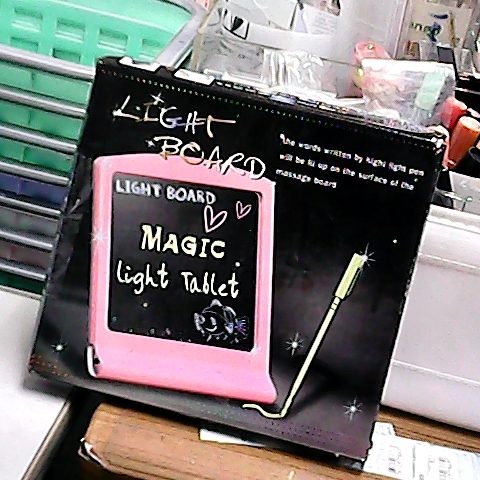 LIGHT
BOARD
The words written by highl light pen
will be lit up on the surface of the
massage board
LIGHT BOARD
MAGIC
Light Tablet